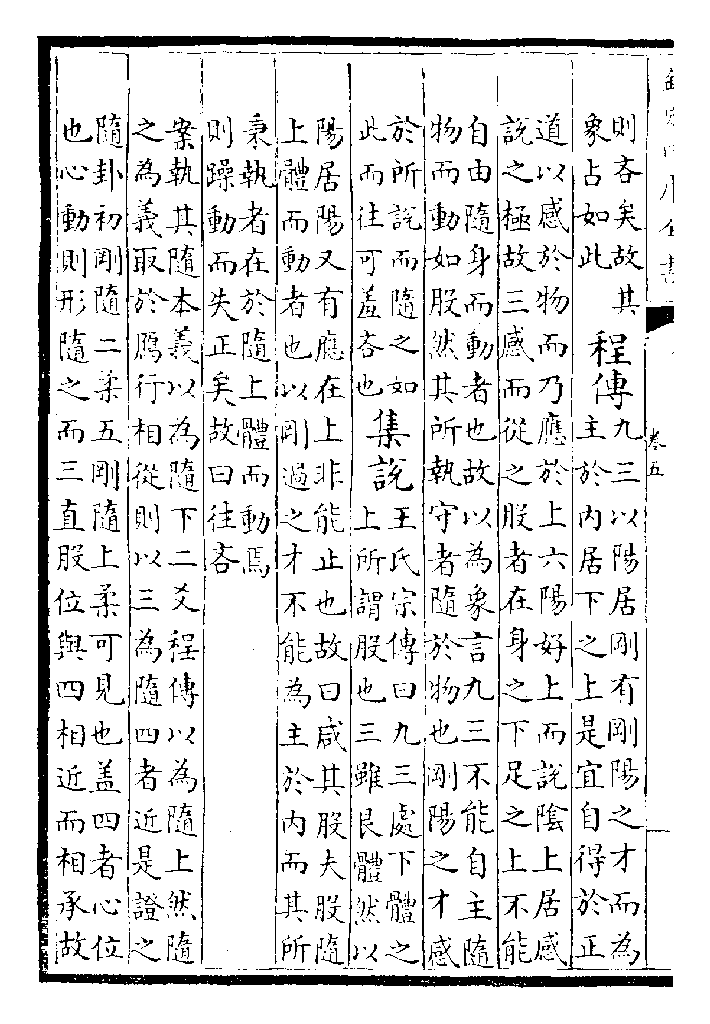 則吝矣故其
象占如此
程傳
九三以陽居剛有剛陽之才而為
主於內居下之上是宜自得於正
道以感於物而乃應於上六陽好上而說陰上居感
說之極故三感而從之股者在身之下足之上不能
自由隨身而動者也故以為象言九三不能自主隨
物而動如股然其所執守者隨於物也剛陽之才感
於所說而隨之如
此而往可羞吝也
集說
王氏宗傳曰九三處下體之
上所謂股也三雖艮體然以
陽居陽又有應在上非能止也故曰咸其股夫股隨
上體而動者也以剛過之才不能為主於內而其所
秉執者在於隨上體而動焉
則躁動而失正矣故曰往吝
案執其隨本義以為隨下二爻程傳以為隨上然隨
之為義取於鴈行相從則以三為隨四者近是證之
隨卦初剛隨二柔五剛隨上柔可見也盖四者心位
也心動則形隨之而三直股位與四相近而相承故
卷五